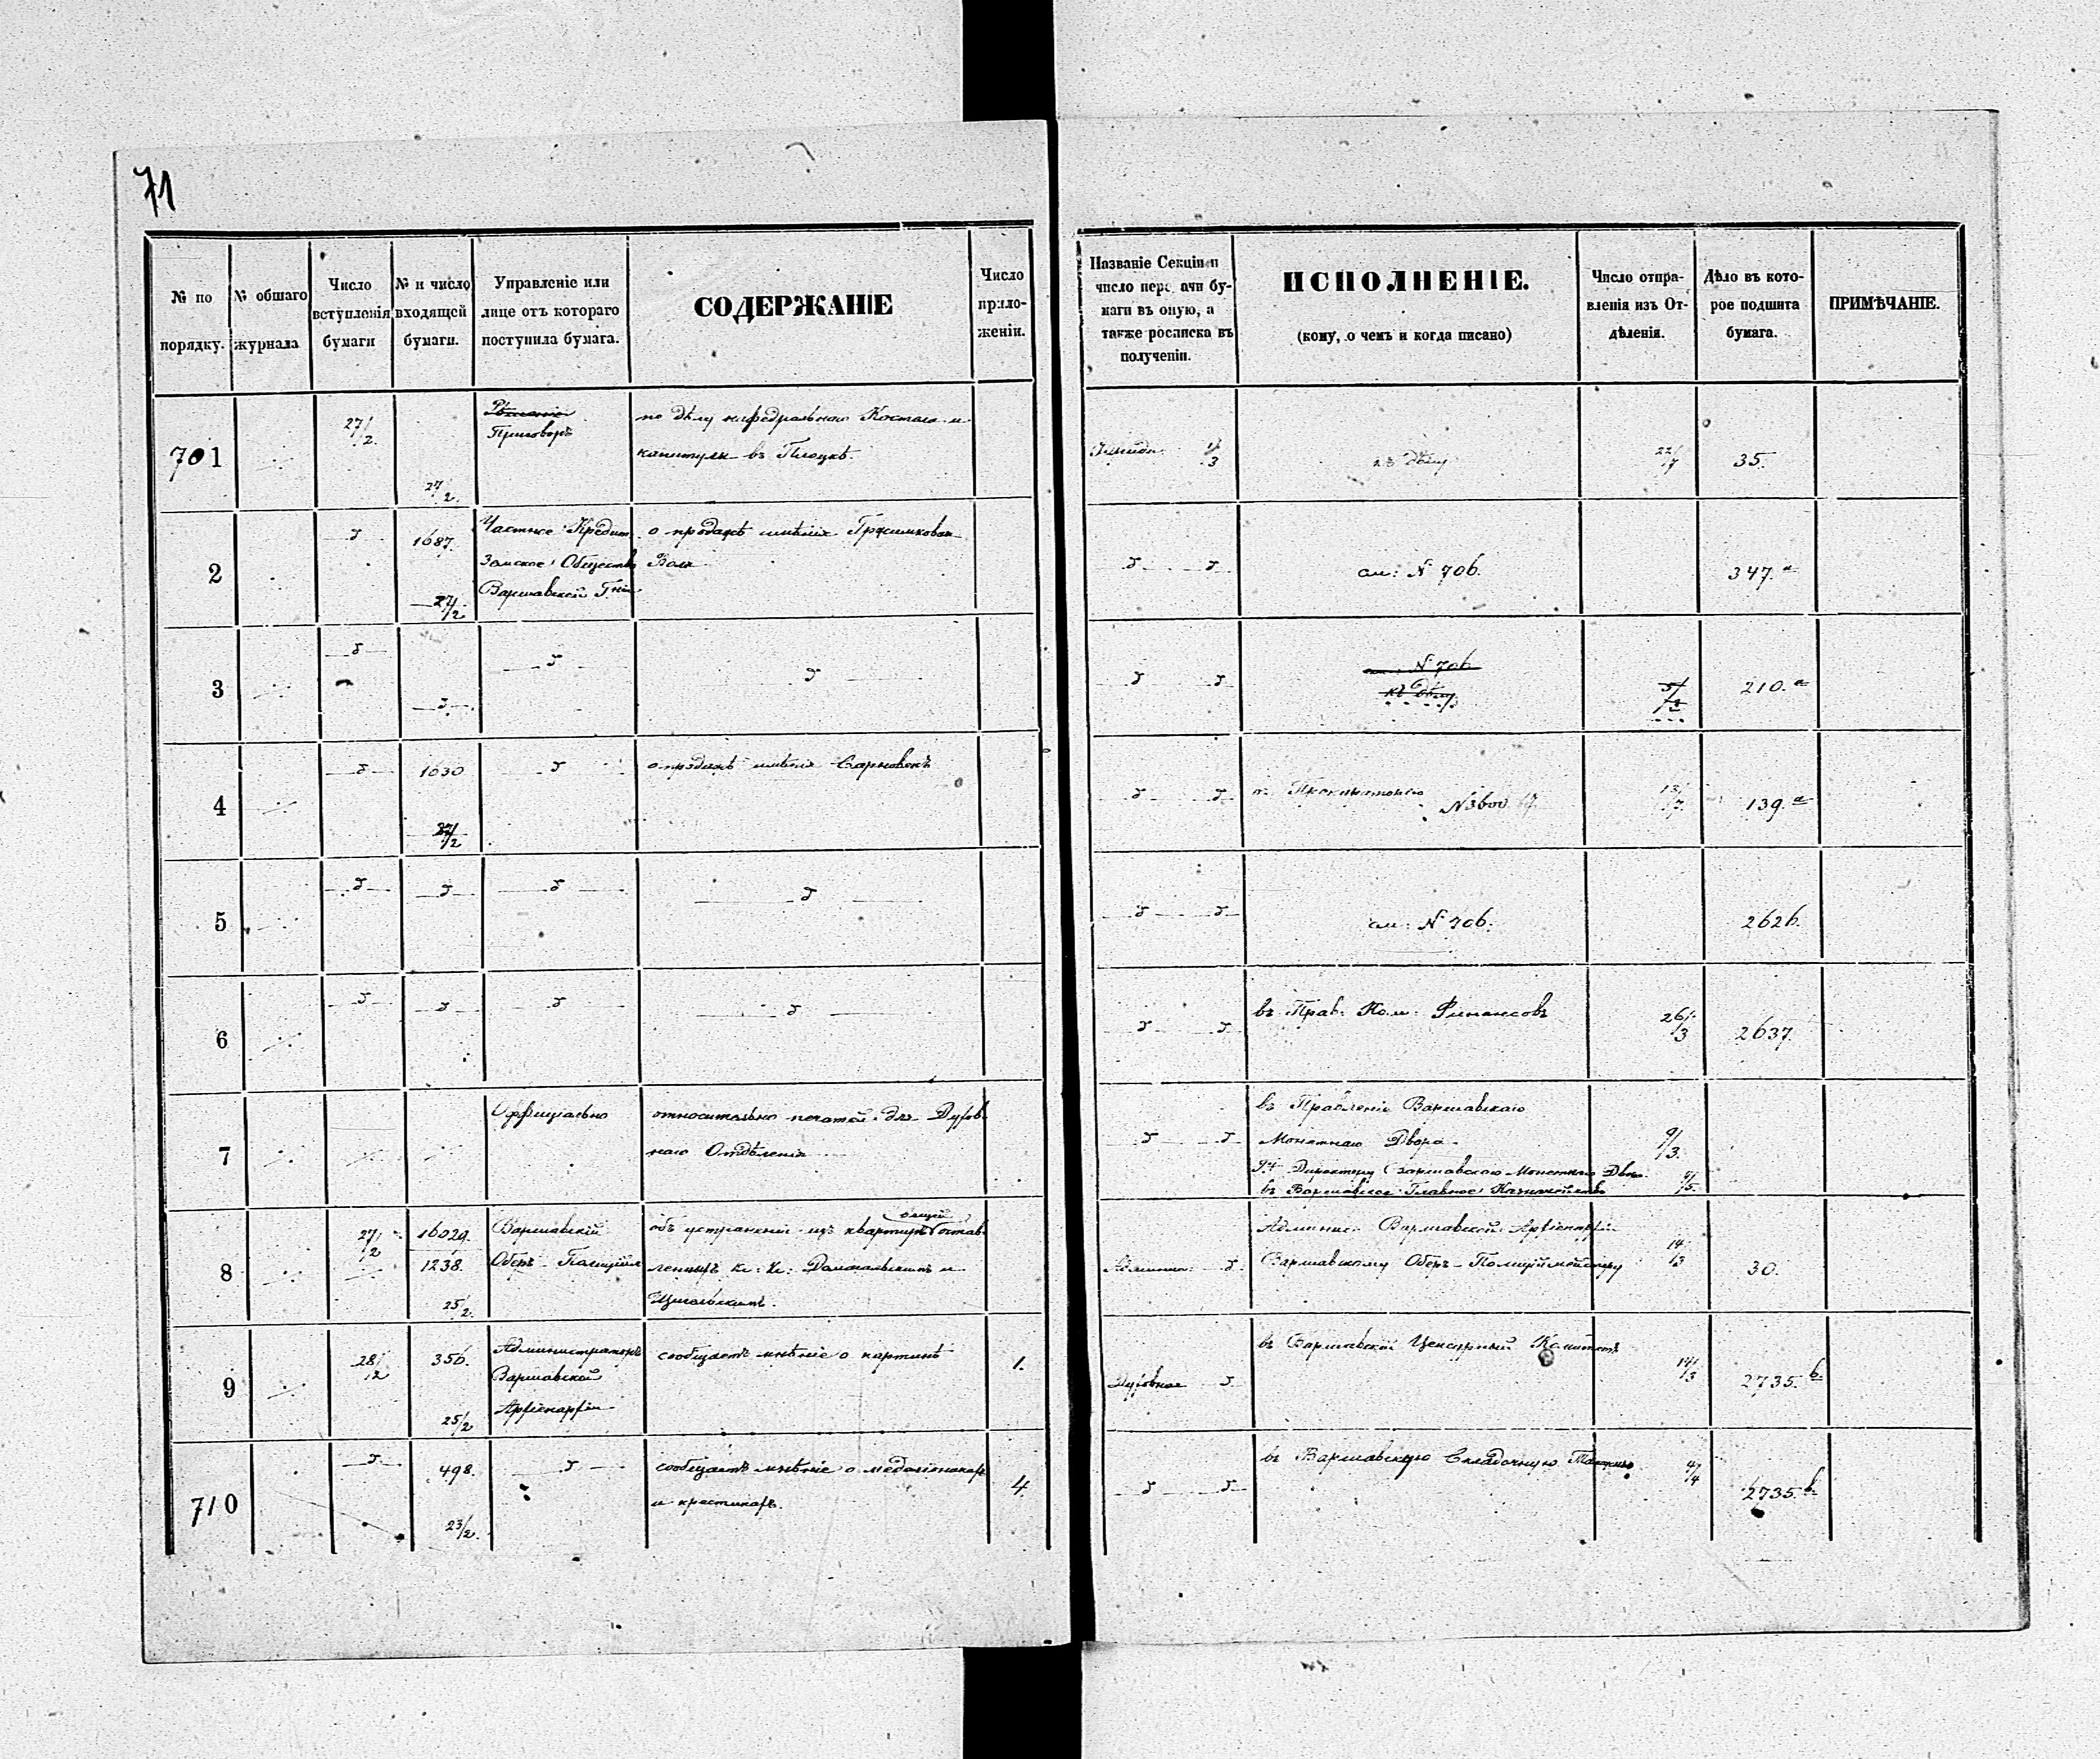 71
№ по порядку.
№ общаго журнала
Число вступленія бумаги
№ и число входящей бумаги.
Управленіе или лице отъ котораго поступила бумага.
СОДЕРЖАНІЕ
Число приложеніи.
Названіе Секціи и число передачи бумаги въ оную, а также росписка въ полученіи.
ИСПОЛНЕНІЕ.
(кому, о чемъ и когда писано)
Число отправленія изъ Отдѣленія.
Дѣло въ которое подшита бумага.
ПРИМѢЧАНІЕ.
701
27/2
27/2.
Приговоръ
по дѣлу кафедральнаго Костела и
капитулы въ Плоцкѣ.
/3
къ дѣлу
22/7
35.
2
1687.
27/2
Частное Кредит.
Земское Общество
Варшавской Гніи
о продажѣ имѣнія
Воля
см: № 706.
347. а
3
№ 706
къ дѣлу
210. а
4
1630
27/2
о продажѣ имѣнія Сарновекъ
№3600
13/7.
139. а
5
см: № 706.
2626.
6
въ Прав. Ком. Финансовъ
26/3
2637.
7
Оффиціально
относительно печатей для Духов-
наго Отдѣленія
въ Правленіе Варшавскаго
Монетнаго Двора
9/3.
Директору Варшавскаго Монетнаго Двора.
въ Варшавское Главное Казначейство
9/5.
8
27/2
16029.
1238.
25/2.
Варшавскій
Оберъ-Полиція
объ устраненіи изъ квартиръ остав-
ленныхъ к: к: Домогальскимъ и
Администр. Варшавской Архіепархіи
Варшавскому Оберъ-Полиціймейстеру
14/3
30.
9
28/2
356.
25/2
Администраторъ
Варшавской
Архіепархіи
сообщаетъ мнѣніе о картинѣ
1.
Духовная
въ Варшавскій Цензурный Комитетъ
14/3
2735. б
710
498.
23/2.
сообщаетъ мнѣніе о медаліонахъ
и крестикахъ.
4.
въ Варшавскую Складочную Таможню
4/4
2735. б